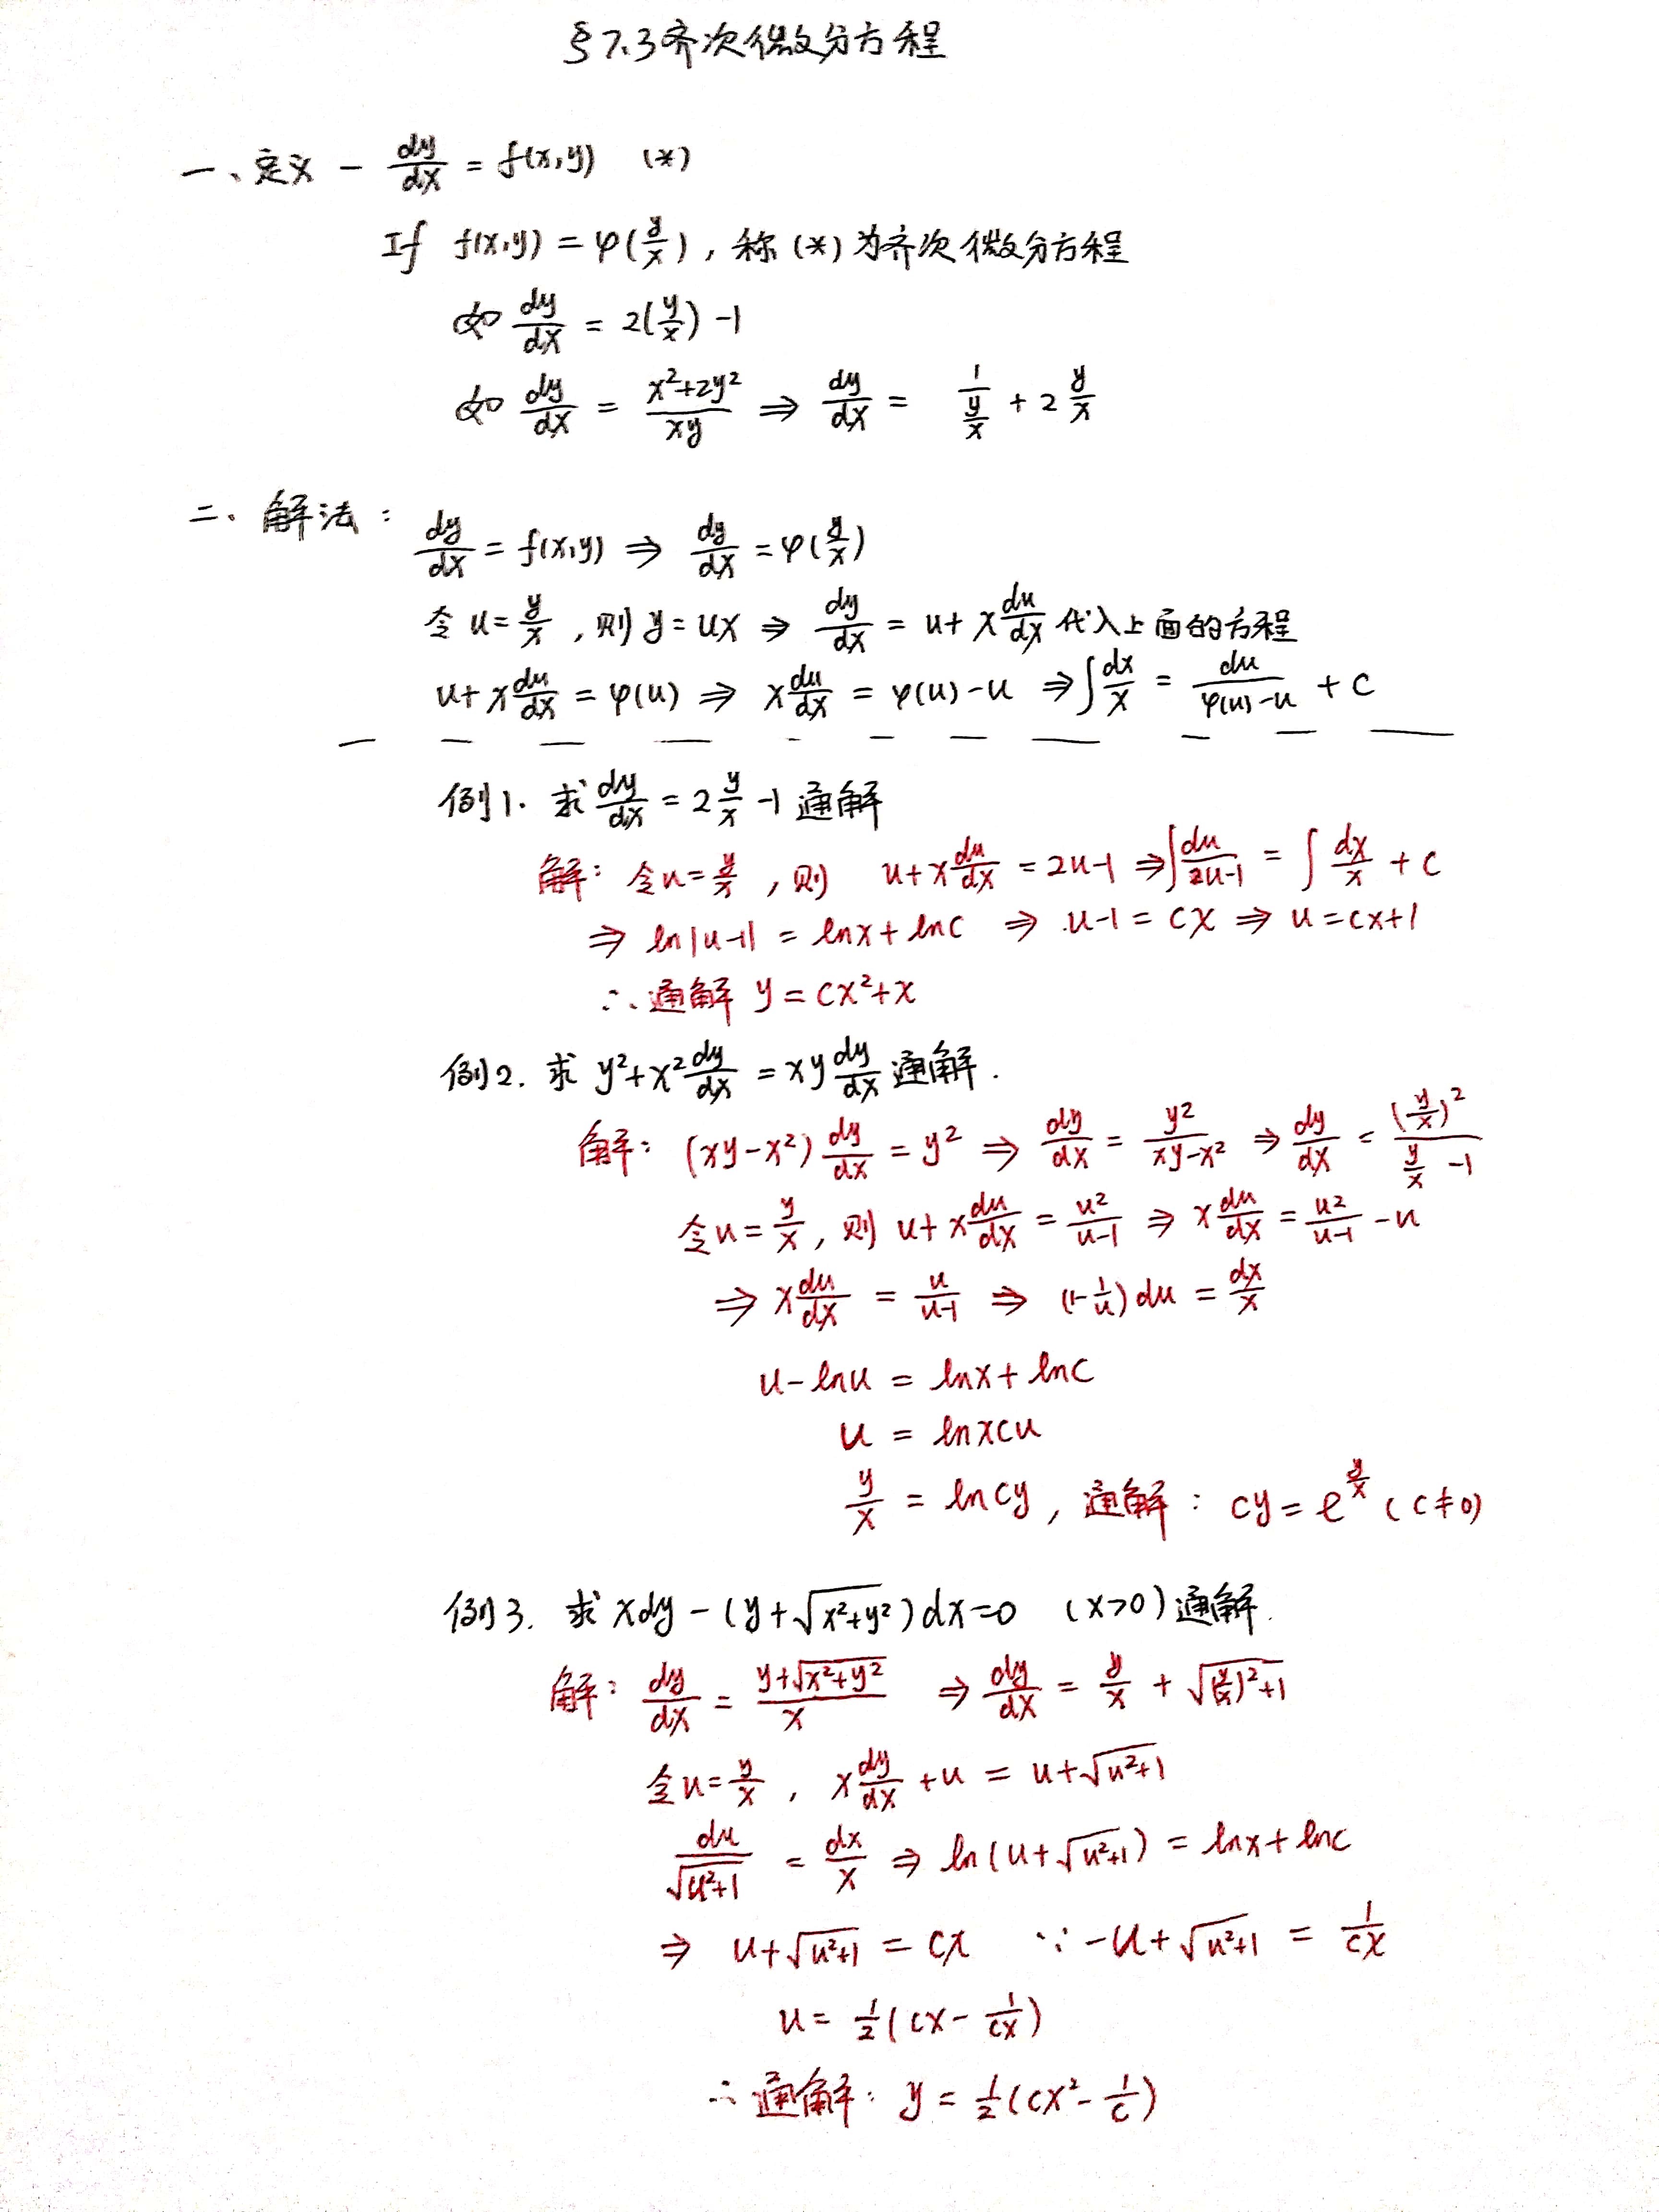 §7.3 齐次微分方程
一、定义 - dy/dx = f(x,y) (*)
If f(x,y) = φ(y/x), 称 (*) 为齐次微分方程
如 dy/dx = 2(y/x) -1
如 dy/dx = (x²+2y²)/(xy) ⇒ dy/dx = 1/(y/x) + 2 y/x
二、解法:
dy/dx = f(x,y) ⇒ dy/dx = φ(y/x)
令 u = y/x, 则 y = ux ⇒ dy/dx = u + x du/dx 代入上面的方程
u + x du/dx = φ(u) ⇒ x du/dx = φ(u) - u ⇒ ∫ dx/x = du/(φ(u)-u) + C
例1. 求 dy/dx = 2 y/x -1 通解
解: 令 u = y/x, 则 u + x du/dx = 2u-1 ⇒ ∫ du/(2u-1) = ∫ dx/x + C
⇒ ln|u-1| = lnx + lnc ⇒ u-1 = cx ⇒ u = cx+1
∴ 通解 y = cx²+x
例2. 求 y²+x² dy/dx = xy dy/dx 通解.
解: (xy-x²) dy/dx = y² ⇒ dy/dx = y²/(xy-x²) ⇒ dy/dx = (y/x)²/(y/x -1)
令 u = y/x, 则 u + x du/dx = u²/(u-1) ⇒ x du/dx = u²/(u-1) - u
⇒ x du/dx = u/(u-1) ⇒ (1-1/u) du = dx/x
u - lnu = lnx + lnc
u = lnxcu
y/x = lncy, 通解: cy = e^(y/x) (c≠0)
例3. 求 xdy - (y+√(x²+y²))dx=0 (x>0) 通解.
解: dy/dx = (y+√(x²+y²))/x ⇒ dy/dx = y/x + √((y/x)²+1)
令 u = y/x, x dy/dx + u = u + √(u²+1)
du/√(u²+1) = dx/x ⇒ ln(u+√(u²+1)) = lnx + lnc
⇒ u+√(u²+1) = cx ∵ -u+√(u²+1) = 1/(cx)
u = 1/2(cx - 1/(cx))
∴ 通解: y = 1/2(cx² - 1/c)